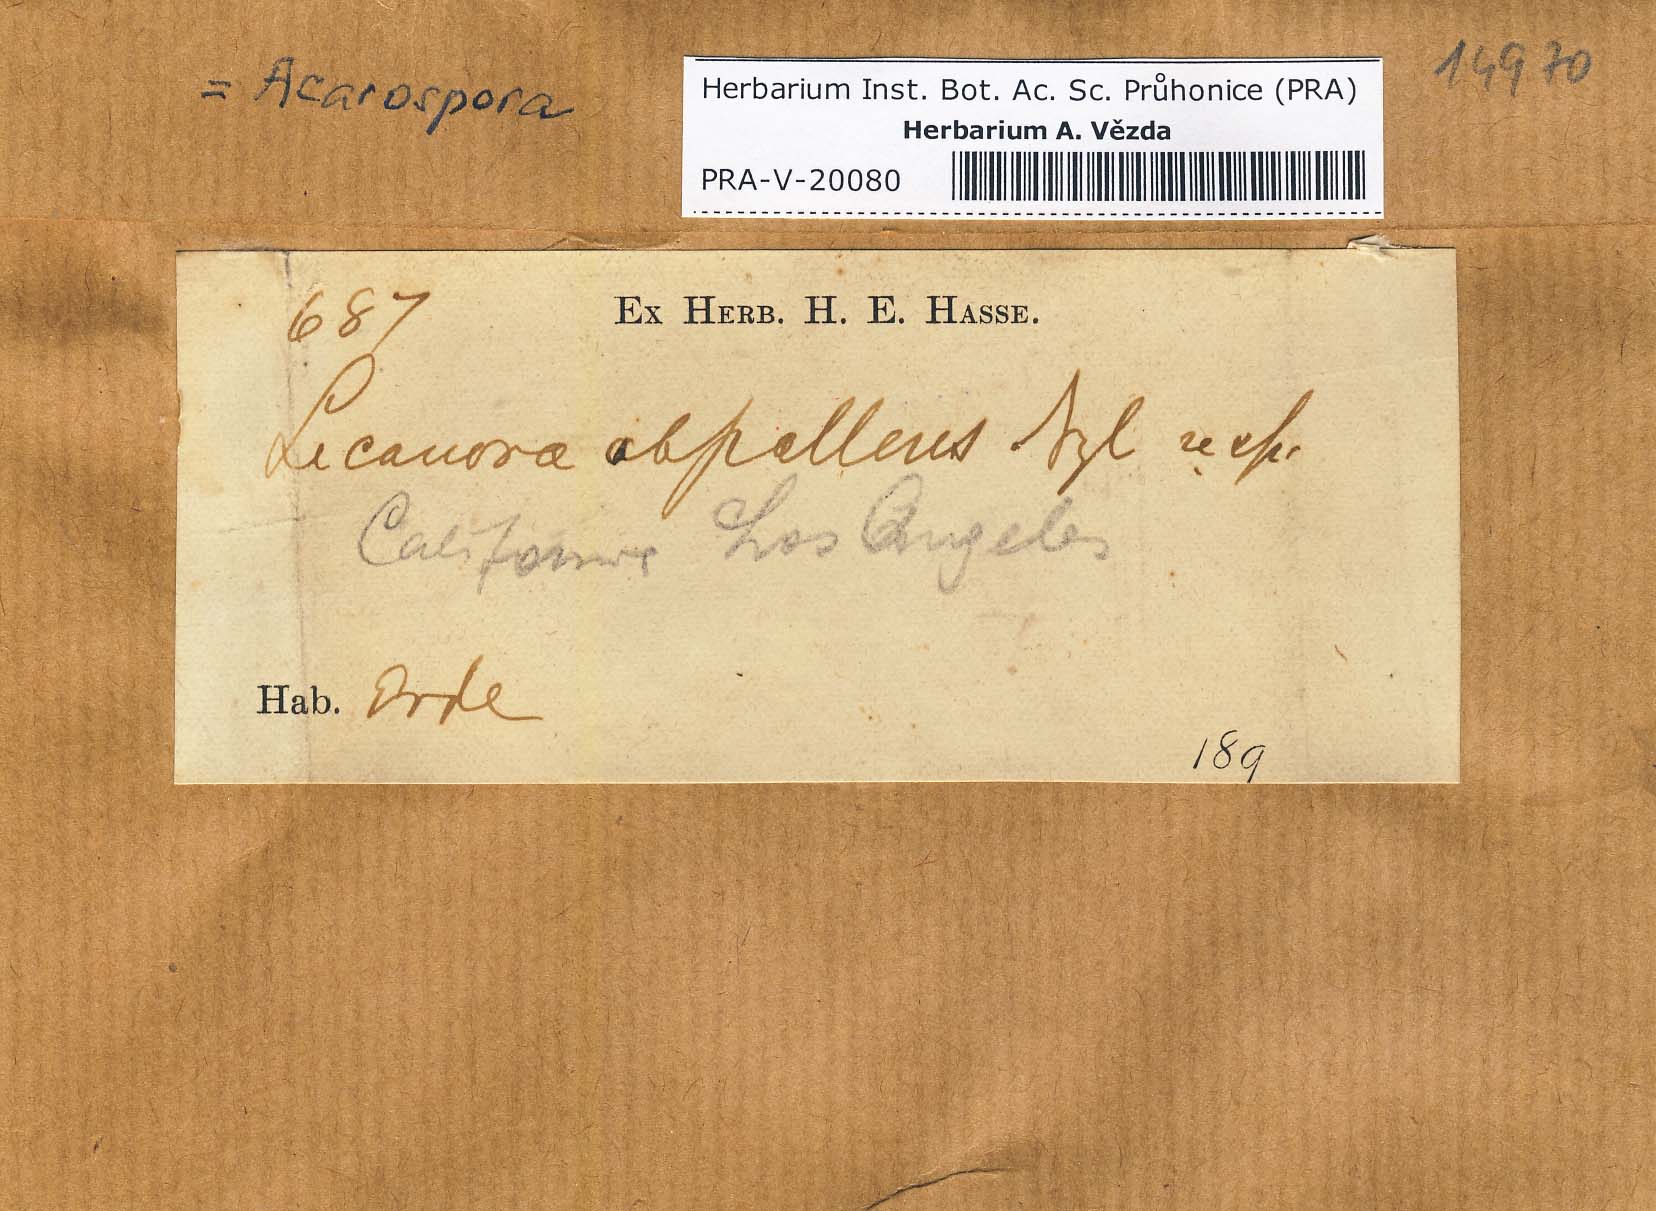 = Acarospora
14970
Herbarium Inst. Bot. Ac. Sc. Průhonice (PRA)
Herbarium A. Vězda
PRA-V-20080
687
Ex Herb. H. E. Hasse.
Lecanora obpallens Nyl
California Los Angeles
Hab. Erde
189